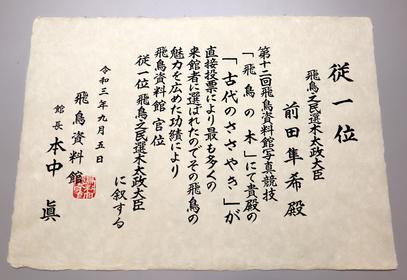 従一位
飛鳥之民選木太政大臣
前田隼希殿
第十二回飛鳥資料館写真競技
「飛鳥の木」にて貴殿の
「古代のささやき」が
直接投票により最も多くの
来館者に選ばれたのでその飛鳥の
魅力を広めた功績により
飛鳥資料館官位
従一位 飛鳥之民選木太政大臣
に叙する
令和三年九月五日
飛鳥資料館
館長 本中 眞